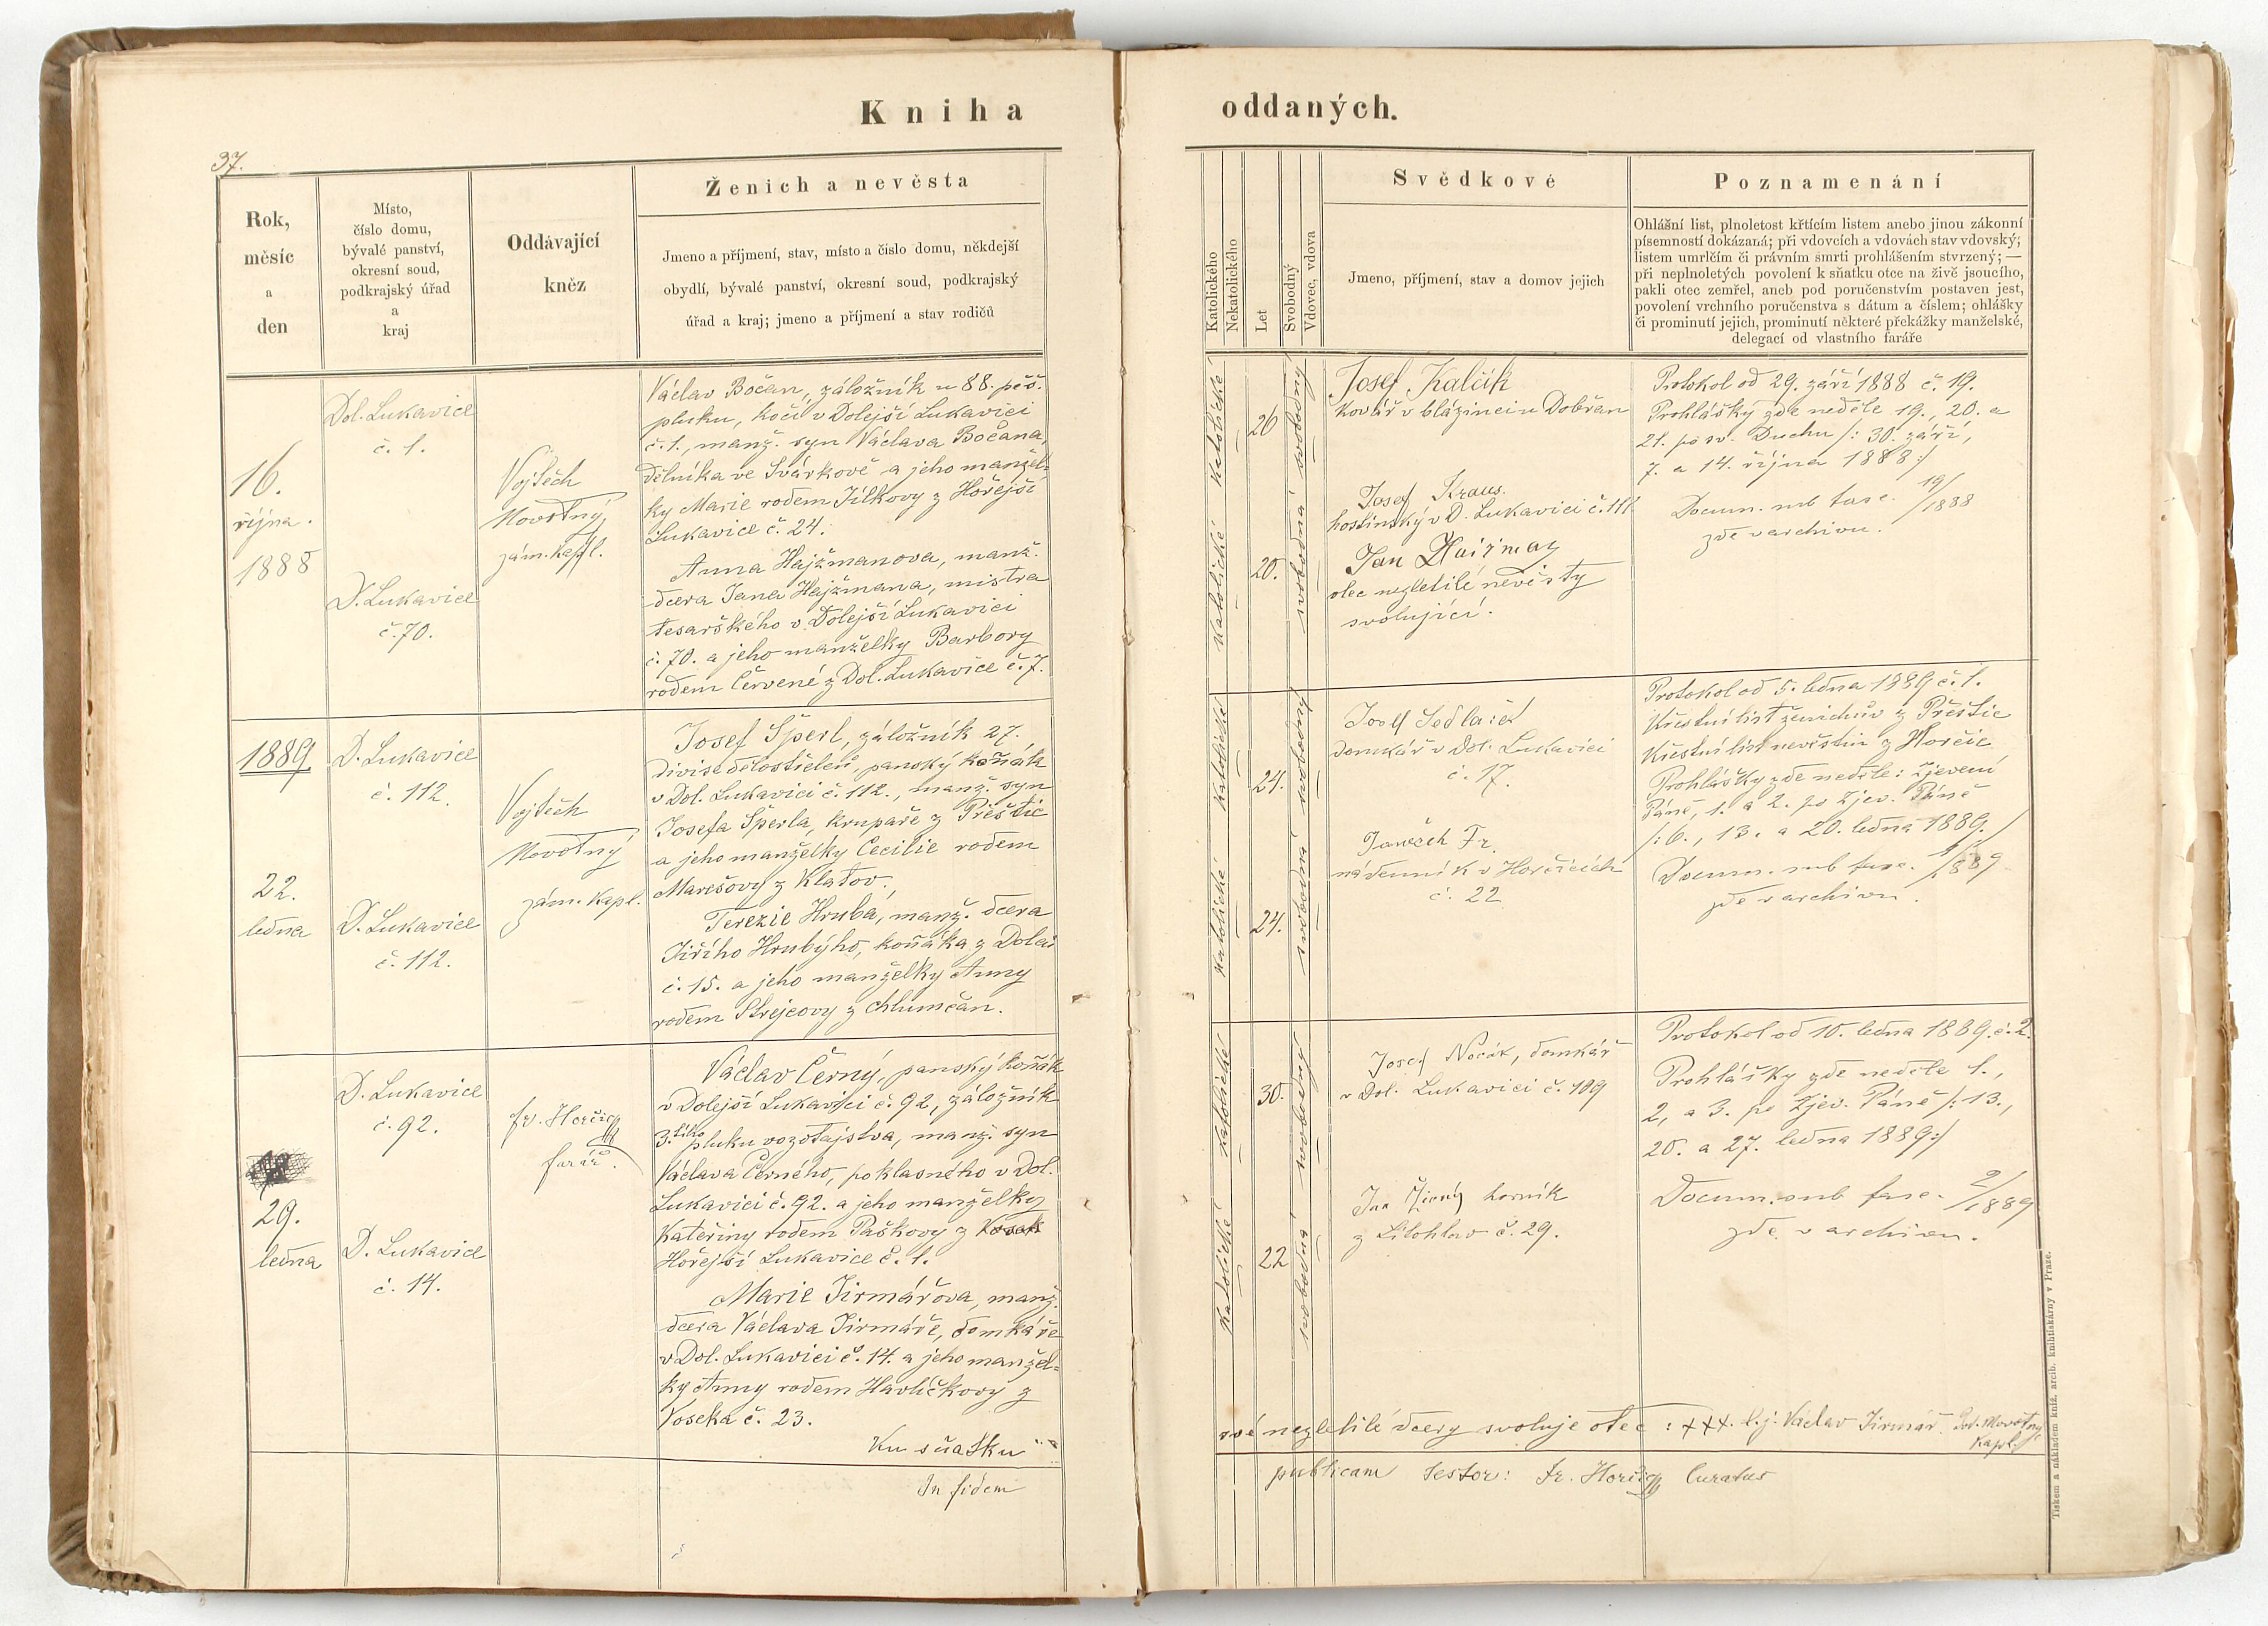 Kniha oddaných.
37.
Rok,
měsíc
a
den
Místo,
číslo domu,
bývalé panství,
okresní soud,
podkrajský úřad
a
kraj
Oddávající
kněz
Ženich a nevěsta
Jmeno a příjmení, stav, místo a číslo domu, někdejší
obydlí, bývalé panství, okresní soud, podkrajský
úřad a kraj; jmeno a příjmení a stav rodičů
Katolického
Nekatolického
Let
Svobodný
Vdovec, vdova
Svědkové
Jmeno, příjmení, stav a domov jejich
Poznamenání
Ohlášní list, plnoletost křtícím listem anebo jinou zákonní
písemností dokázaná; při vdovcích a vdovách stav vdovský;
listem umrlčím či právním smrti prohlášením stvrzený; —
při neplnoletých povolení k sňatku otce na živě jsoucího,
pakli otec zemřel, aneb pod poručenstvím postaven jest,
povolení vrchního poručenstva s dátum a číslem; ohlášky
či prominutí jejich, prominutí některé překážky manželské,
delegací od vlastního faráře
16.
října.
1888
Dol. Lukavice
č. 1.
D. Lukavice
č. 70.
Vojtěch
Novotný
zám. kapl.
Václav Bočan, záložník u 88. pěš.
pluku, kočí v Dolejší Lukavici
č. 1., manž. syn Václava Bočana,
dělníka ve Svárkově a jeho manžel-
ky Marie rodem Jílkovy z Hořejší
Lukavice č. 24.
Anna Hajžmanova, manž.
dcera Jana Hajžmana, mistra
tesařského v Dolejší Lukavici
č. 70. a jeho manželky Barbory
rodem Červené z Dol. Lukavice č. 7.
katolické
katolické
26
20.
svobodný
svobodná
Josef Kalčik
kovář v blázinci u Dobřan
Josef Kraus.
hostinský v D. Lukavici č. 111
Jan Hajžman
otec nezletilé nevěsty
svolující.
Protokol od 29. září 1888 č. 19.
Prohlášky zde neděle 19., 20. a
21. po sv. Duchu /: 30. září,
7. a 14. října 1888 :/
Docum. sub fasc. 19/1888
zde v archivu.
1889
22.
ledna
D. Lukavice
č. 112.
D. Lukavice
č. 112.
Vojtěch
Novotný
zám. kapl.
Josef Šperl, záložník 27.
divise dělostřelců, panský koňák
v Dol. Lukavici č. 112., manž. syn
Josefa Šperla, krupaře z Přeštic
a jeho manželky Cecilie rodem
Marešovy z Klatov.
Terezie Hrubá, manž. dcera
Jiřího Hrubýho, koňáka z Dolcí
č. 15. a jeho manželky Anny
rodem Strejcovy z Chlumčan.
katolické
katolické
24.
24.
svobodný
svobodná
Josef Sedláček
domkář v Dol. Lukavici
č. 17.
Janeček Fr.
nádenník v Horčicích
č. 22
Protokol od 5. ledna 1889 č. 1.
Křestní list ženichův z Přeštic
Křestní list nevěstin z Horčic
Prohlášky zde neděle: Zjevení
Páně, 1. a 2. po Zjev. Páně
/: 6., 13. a 20. ledna 1889. /
Docum. sub fasc. 1/1889
zde v archivu.
29.
ledna
D. Lukavice
č. 92.
D. Lukavice
č. 14.
fr. Horčicz
farář.
Václav Černý, panský koňák
v Dolejší Lukavici č. 92, záložník
3.tího pluku vozotajstva, manž. syn
Václava Černého, poklasného v Dol.
Lukavici č. 92. a jeho manželky
Kateřiny rodem Paškovy z
Hořejší Lukavice č. 1.
Marie Jirmářova, manž.
dcera Václava Jirmáře, domkáře
v Dol. Lukavici č. 14. a jeho manžel-
ky Anny rodem Havlíčkovy z
Voseka č. 23.
katolické
katolické
30.
22
svobodný
svobodná
Josef Novák, domkář
v Dol. Lukavici č. 109
Jan Černý horník
z Litohlav č. 29.
Protokol od 10. ledna 1889. č. 2.
Prohlášky zde neděle 1.,
2, a 3. po Zjev. Páně /: 13.,
20. a 27. ledna 1889 :/
Docum. sub fasc. 2/1889
zde v archivu.
Ku sňatku své nezletilé dcery svoluje otec : +++. t. j. Václav Jirmář. Novotný
Kapl.
In fidem publicam testor: Fr. Horčicz Curatus
Tiskem a nákladem kníž. arcib. knihtiskárny v Praze.